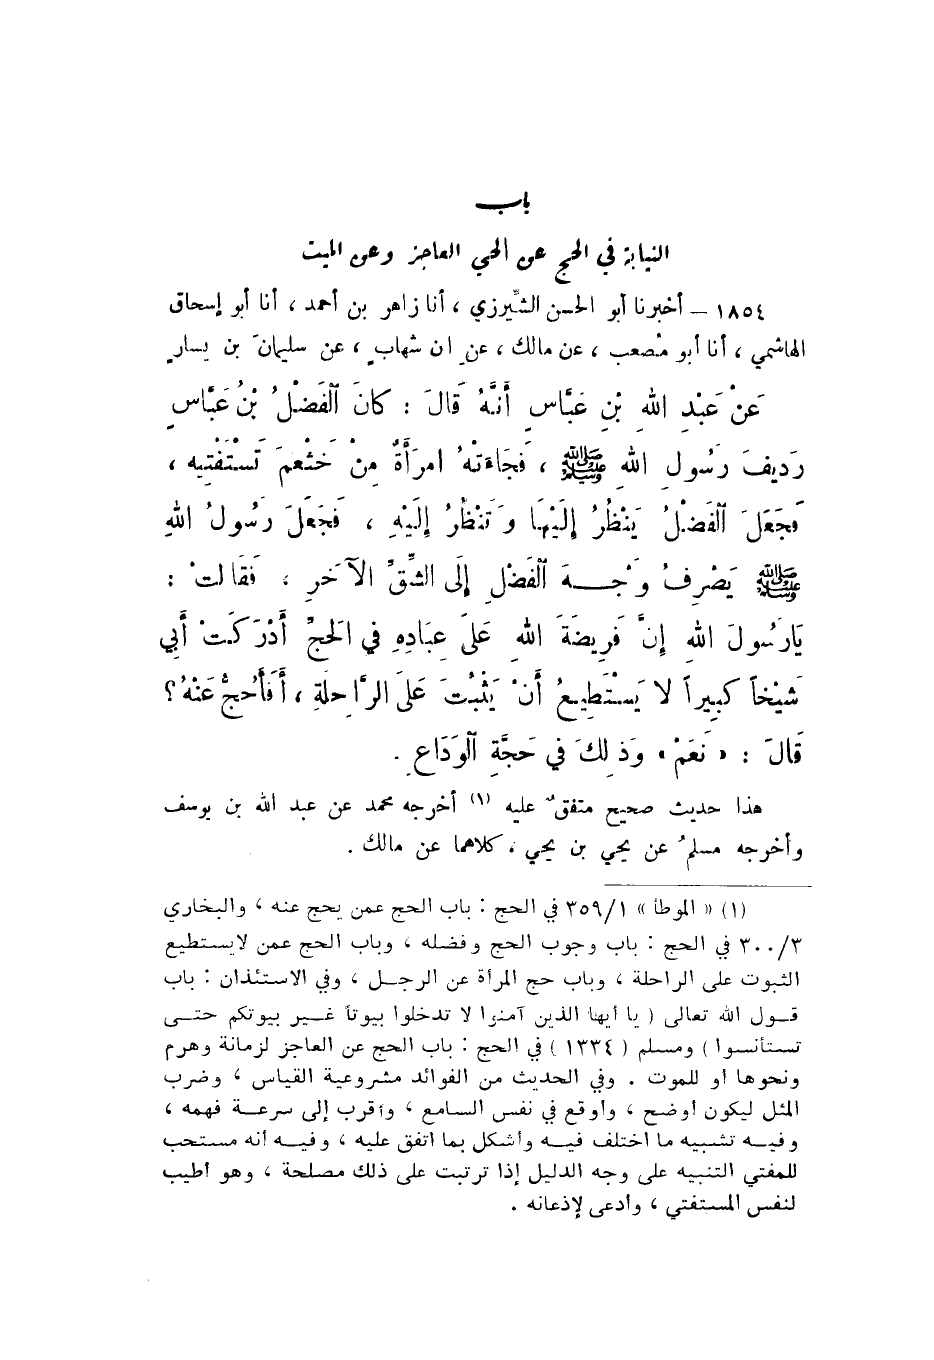 باب
النيابة في الحج عن الحي العاجز وعن الميت
١٨٥٤ – أخبرنا أبو الحسن الشِّيرزي ، أنا زاهر بن أحمد ، أنا أبو إسحاق
الهاشمي ، أنا أبو مصعب ، عن مالك ، عن ان شهابٍ ، عن سليمانَ بن يسارٍ
عَنْ عَبْدِ اللهِ بْنِ عَبَّاسٍ أَنَّهُ قَالَ : كَانَ ٱلْفَضْلُ بْنُ عَبَّاسٍ
رَدِيفَ رَسُولِ اللهِ ﷺ ، فَجَاءَتْهُ امرَأَةٌ مِنْ خَثْعَمَ تَسْتَفْتِيهِ ،
فَجَعَلَ ٱلْفَضْلُ يَنْظُرُ إِلَيْهَا وَتَنْظُرُ إِلَيْهِ ، فَجَعَلَ رَسُولُ اللهِ
ﷺ يَصْرِفُ وَجْهَ ٱلْفَضْلِ إِلَى الشِّقِّ الآخَرِ ، فَقَالَتْ :
يَارَسُولَ اللهِ إِنَّ فَرِيضَةَ اللهِ عَلَى عِبَادِهِ فِي الْحَجِّ أَدْرَكَتْ أَبِي
شَيْخاً كَبِيراً لا يَسْتَطِيعُ أَنْ يَثْبُتَ عَلَى الرَّاحِلَةِ ، أَفَأَحُجُّ عَنْهُ ؟
قَالَ : « نَعَمْ » وَذلِكَ فِي حَجَّةِ ٱلْوَدَاعِ .
هذا حديث صحيح متفقٌ عليه (١) أخرجه محمد عن عبد الله بن يوسف
وأخرجه مسلمٌ عن يحيى بن يحيى ، كلاهما عن مالك .
(١) « الموطأ » ٣٥٩/١ في الحج : باب الحج عمن يحج عنه ، والبخاري
٣٠٠/٣ في الحج : باب وجوب الحج وفضله ، وباب الحج عمن لايستطيع
الثبوت على الراحلة ، وباب حج المرأة عن الرجل ، وفي الاستئذان : باب
قول الله تعالى ( يا أيها الذين آمنوا لا تدخلوا بيوتاً غير بيوتكم حتى
تستأنسوا ) ومسلم ( ١٣٣٤ ) في الحج : باب الحج عن العاجز لزمانة وهرم
ونحوها أو للموت . وفي الحديث من الفوائد مشروعية القياس ، وضرب
المثل ليكون أوضح ، وأوقع في نفس السامع ، وأقرب إلى سرعة فهمه ،
وفيه تشبيه ما اختلف فيه وأشكل بما اتفق عليه ، وفيه أنه مستحب
للمفتي التنبيه على وجه الدليل إذا ترتبت على ذلك مصلحة ، وهو أطيب
لنفس المستفتي ، وأدعى لإذعانه .